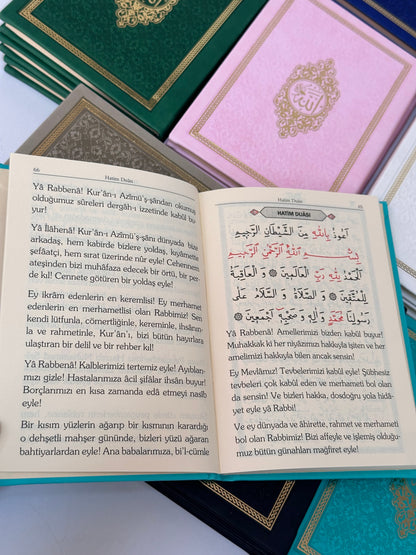 الله
Hatim Duâsı 65
HATİM DUÂSI
اَعُوذُ بِاللّٰهِ مِنَ الشَّيْطَانِ الرَّجِيمِ
بِسْمِ اللّٰهِ الرَّحْمٰنِ الرَّحِيمِ
اَلْحَمْدُ لِلّٰهِ رَبِّ الْعَالَمِينَ ❊ وَ الْعَاقِبَةُ
لِلْمُتَّقِينَ ❊ وَ الصَّلَاةُ وَ السَّلَامُ عَلٰى
رَسُولِنَا مُحَمَّدٍ وَ اٰلِهِ وَ صَحْبِهِ اَجْمَعِينَ ❊
Yâ Rabbenâ! Amellerimizi bizden kabûl buyur!
Muhakkak ki her niyâzımızı hakkıyla işiten ve her
amelimizi hakkıyla bilen ancak sensin!
Ey Mevlâmız! Tevbelerimizi kabûl eyle! Şübhesiz
tevbeleri çok kabûl eden ve merhameti bol olan
da sensin! Ve bizleri hakka, dosdoğru yola hidâ-
yet eyle yâ Rabbi!
Ve ey dünyada ve âhirette, rahmet ve merhameti
bol olan Rabbimiz! Bizi affeyle ve işlemiş olduğu-
muz bütün günahları mağfiret eyle!
66 Hatim Duâsı
Yâ Rabbenâ! Kur'ân-ı Azîmü'ş-şândan okumuş
olduğumuz sûreleri dergâh-ı izzetinde kabûl bu-
yur!
Yâ İlâhenâ! Kur'ân-ı Azîmü'ş-şânı dünyada bize
arkadaş, hem kabirde bizlere yoldaş, kıyâmette
şefaatçi, hem sırat üzerinde nûr eyle! Cehennem
ateşinden bizi muhâfaza edecek bir örtü, bir per-
de kıl! Cennete götüren bir yoldaş eyle!
Ey ikram edenlerin en keremlisi! Ey merhamet
edenlerin en merhametlisi olan Rabbimiz! Sen
kendi lütfunla, cömertliğinle, kereminle, ihsânın-
la ve rahmetinle, Kur'ân'ı, bizi bütün hayırlara
ulaştıran bir delil ve bir rehber kıl!
Yâ Rabbenâ! Kalblerimizi tertemiz eyle! Ayıbları-
mızı gizle! Hastalarımıza âcil şifâlar ihsân buyur!
Borçlarımızı en kısa zamanda edâ etmeyi nasîb
eyle!
Bir kısım yüzlerin ağarıp bir kısmının karardığı
o dehşetli mahşer gününde, bizleri yüzü ağaran
bahtiyarlardan eyle! Ana babalarımıza, bi'l-cümle